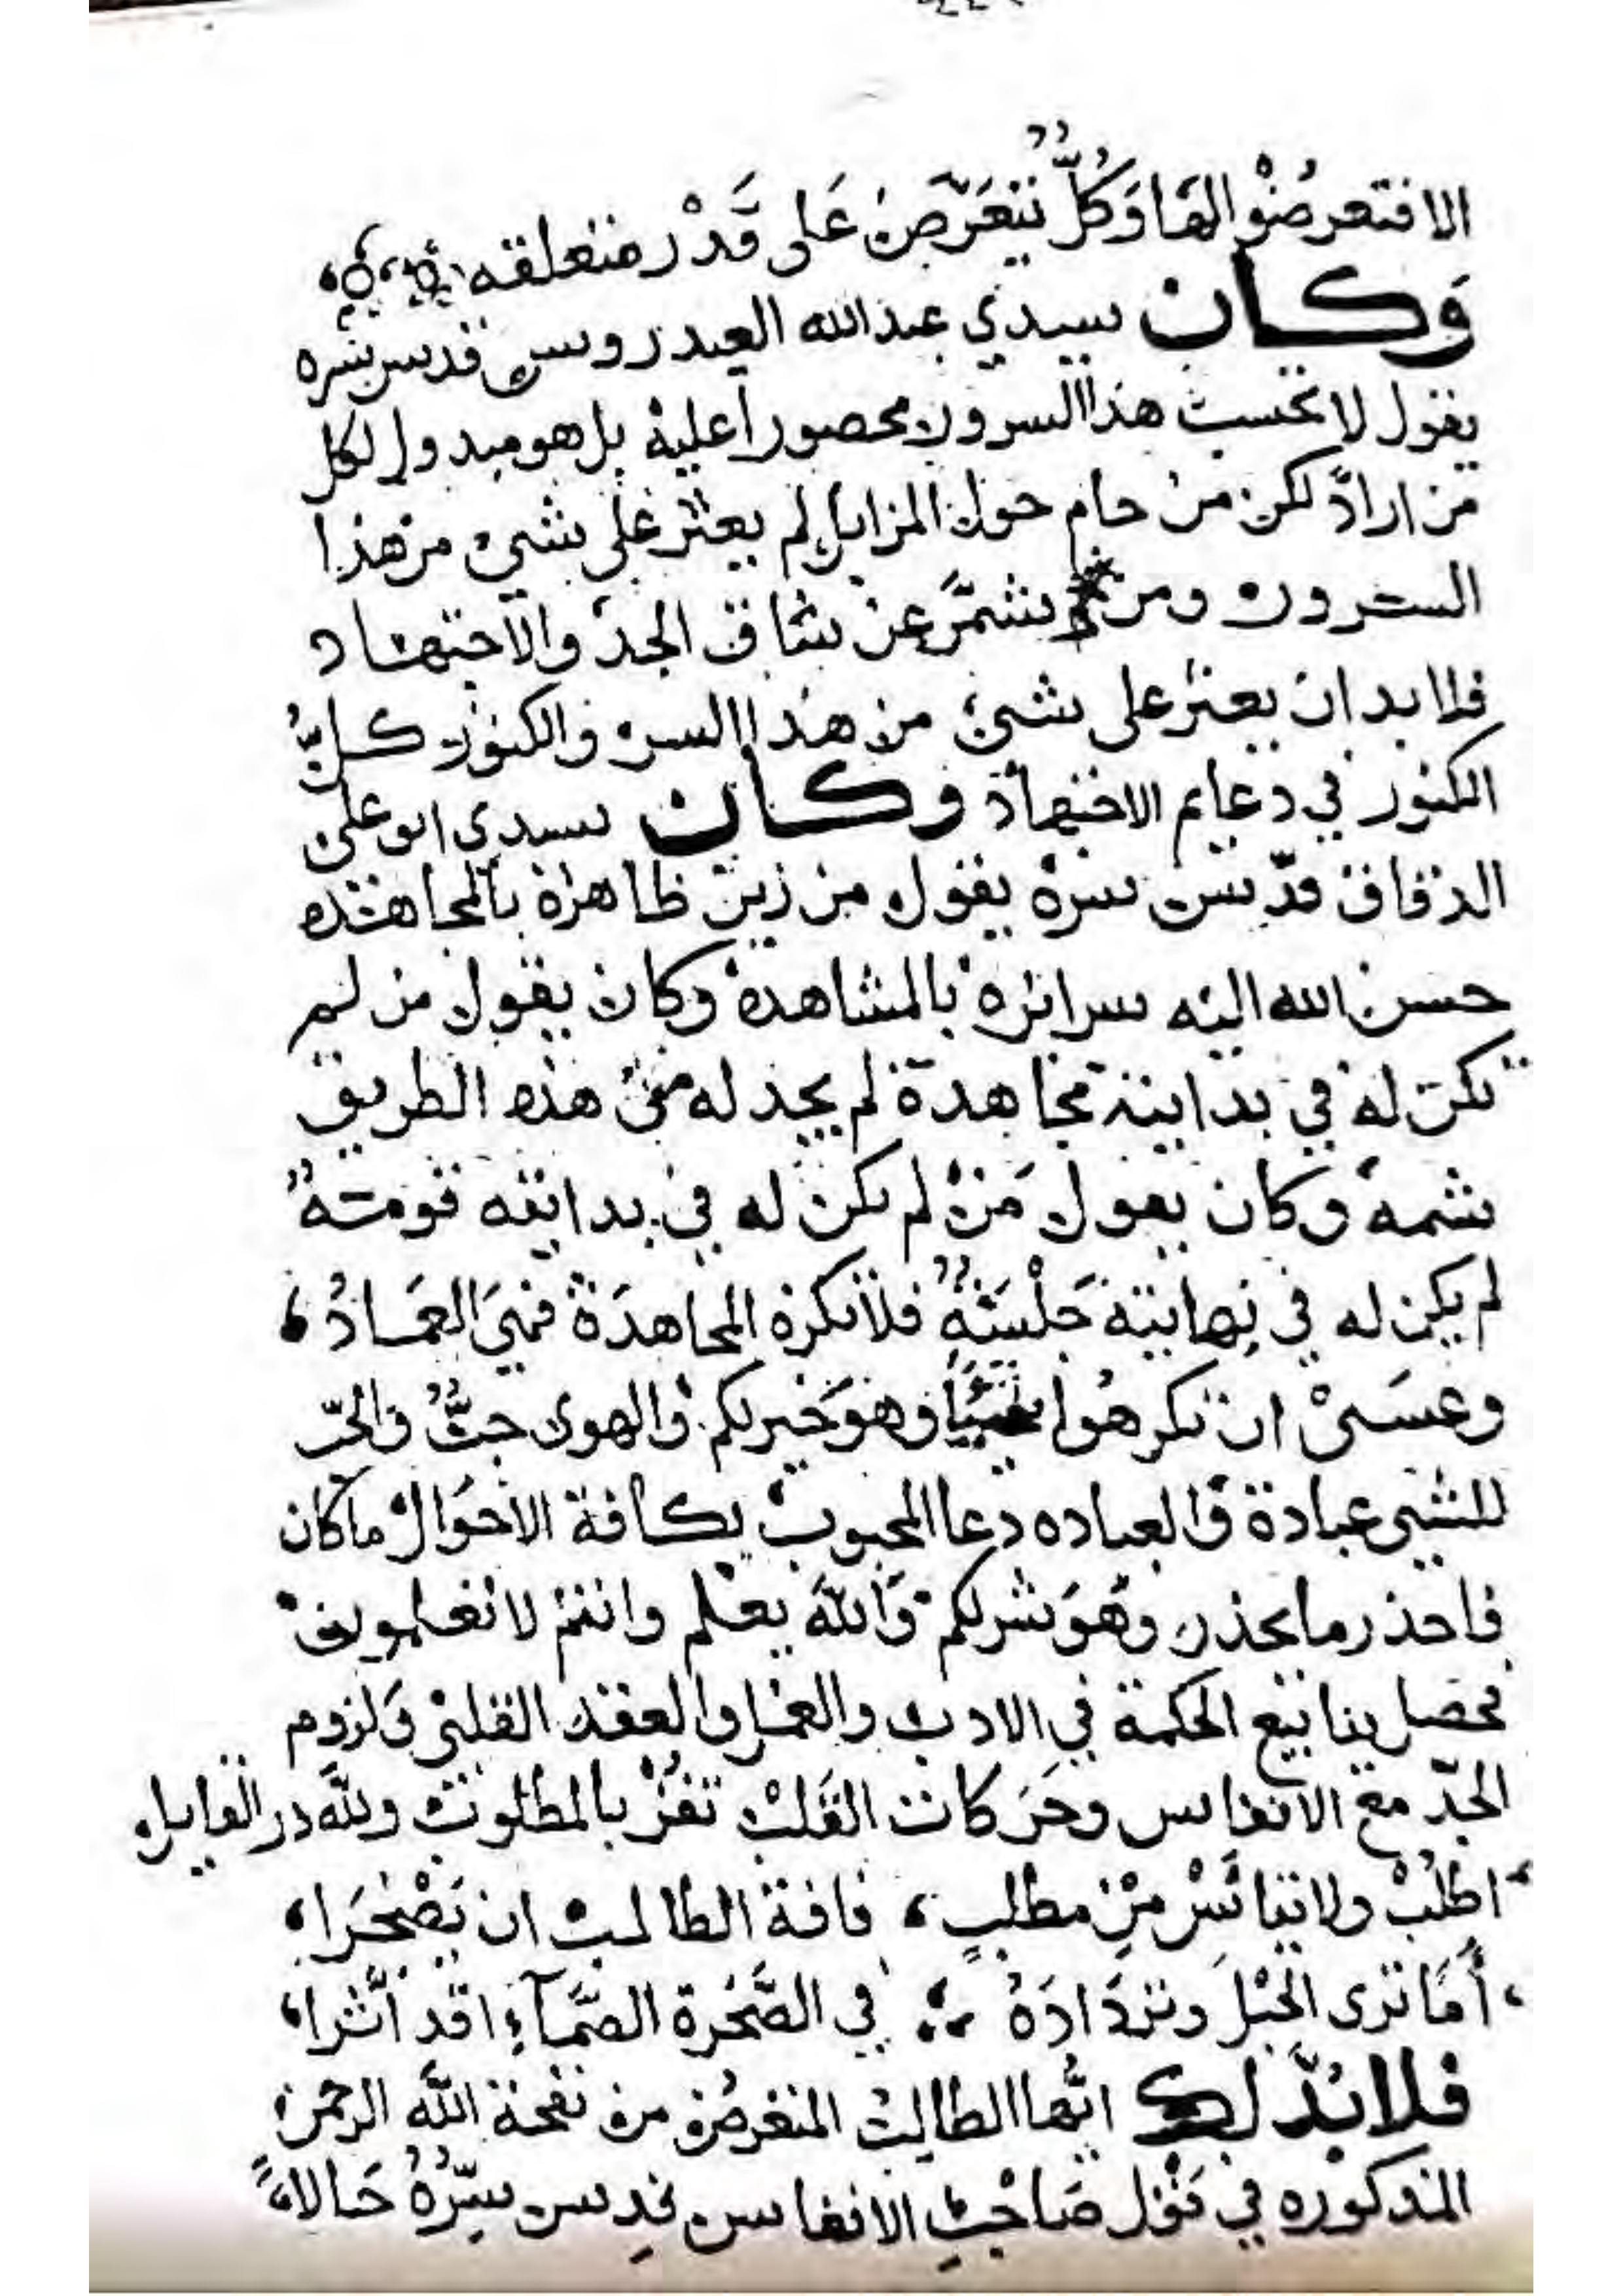 الا فتعرضوا لها وَكُلٌّ يتَعَرَّض عَلى قَدْر متعلقه
وَكان سيدي عبدالله العيدروس قدس سره
يقول لا تحسب هذا السرون محصورا عليه بل هو مبدول لكل
من اراد لكن من حام حول المزابل لم يعثر على شيء من هذا
السرون ومن شمَّر عن ساق الجد والاجتهاد
فلا بد ان يعثر على شيء من هذا السر والكنوز كلُّ
الكنوز في دعايم الاجتهاد وكان سيدي ابو علي
الدقاق قدّس سره يقول من زين ظاهره بالمجاهده
حسن الله اليه سرائره بالمشاهدة وكان يقول من لم
تكن له في بدايته مجاهدة لم يجد له من هذه الطريق
شمه وكان يقول مَن لم يكن له في بدايته قومةٌ
لم يكن له في نهايته جَلْسَةٌ فلا تكره المجاهدَة فهيَ العمَادُ،
وعسَىْ ان تكرهُوا شيئًا وهوَ خَير لكم والهوى حبٌّ والحبّ
للشيى عبادة والعباده دعا المحبوب بكافة الاحوَال ما كان
فاحذر ما يحذر وهَوَ شر لكم وَاللَّه يعْلم وانتم لا تعلمون
تحصل ينابيع الحكمة في الادب والعمل والعقد القلبي وَلزوم
الجدّ مع الانفاس وحَركات القَلب تفُزْ بالمطلوب وللَّه در القايل
اطلُبْ ولا تيأسْ مِنْ مطلبٍ، فافة الطالب ان يَضْجَرَا،
أَمَا ترى الحَبْلَ وتزدَادَهُ ؛ في الصَّخرة الصَّمآءِ قد أثَّرا،
فلا بُدَّ لك ايُّها الطالب المتعرضُ من نفحة اللَّه الرحمن
المذكوره في قوْل صَاحْبِ الانفاس قدِس سِرُّهُ حَالا